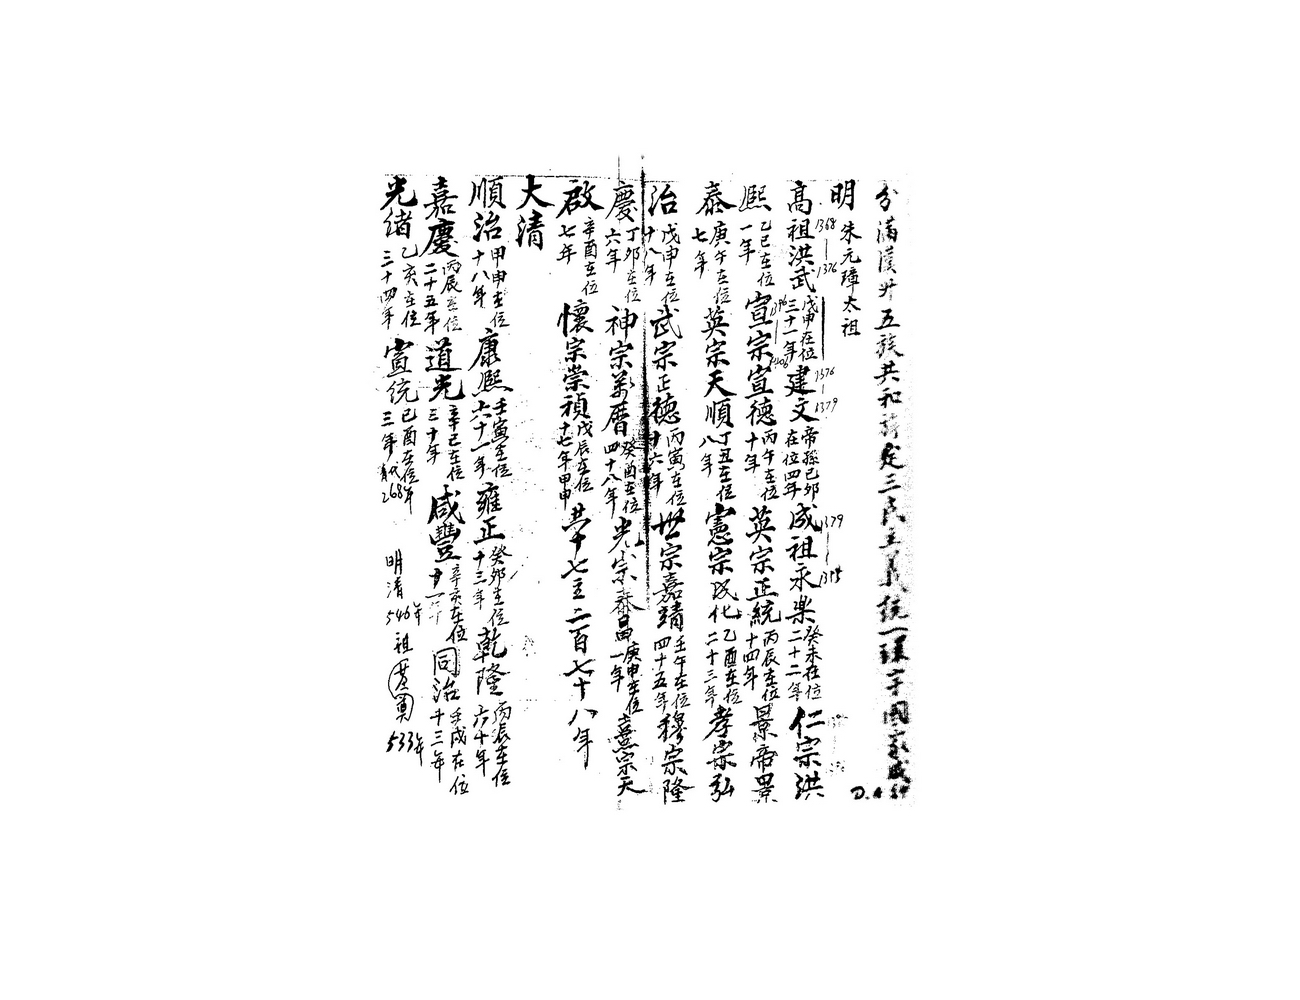 分滿漢廿五族共和 定三民主義統一 宇國家成
明 朱元璋太祖
高祖洪武 1368 | 1376 戊申在位三十一年 建文 1376 | 1379 帝孫己卯在位四年 成祖永樂 1379 癸未在位二十二年 仁宗洪
熙 乙巳在位一年 宣宗宣德 丙午在位十年 英宗正統 丙辰在位十四年 景帝景
泰 庚午在位七年 英宗天順 丁丑在位八年 憲宗成化 乙酉在位二十三年 孝宗弘
治 戊申在位十八年 武宗正德 丙寅在位十六年 世宗嘉靖 壬午在位四十五年 穆宗隆
慶 丁卯在位六年 神宗萬曆 癸酉在位四十八年 光宗泰昌 庚申在位一年 熹宗天
啟 辛酉在位七年 懷宗崇禎 戊辰在位十七年甲申 共十七主二百七十八年
大清
順治 甲申在位十八年 康熙 壬寅在位六十一年 雍正 癸卯在位十三年 乾隆 丙辰在位六十年
嘉慶 丙辰在位二十五年 道光 辛巳在位三十年 咸豐 辛亥在位十一年 同治 壬戌在位十三年
光緒 乙亥在位三十四年 宣統 己酉在位三年 268年
明清546年 祖 533年